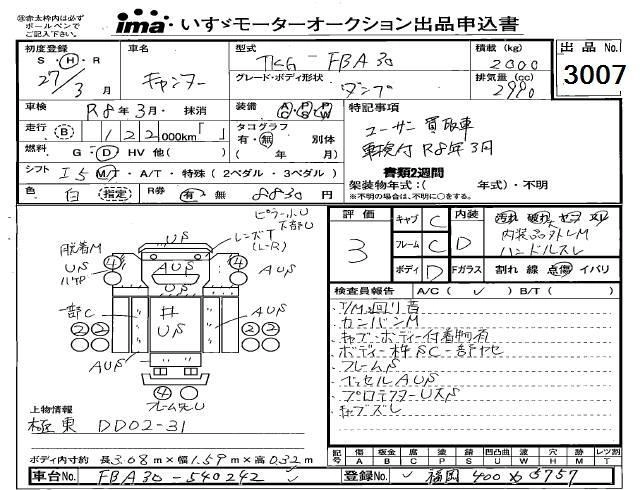 ※赤太枠内は必ず
ボールペンで
ご記入下さい。
ima いすゞモーターオークション出品申込書
初度登録 車名 型式 積載 (kg) 出品No.
S・H・R キャンター TKG-FBA30 2000 3007
27/3月 グレード・ボディ形状 ダンプ 排気量 (cc) 2990
車検 R8年3月・抹消 装備 AC PS PW 特記事項
走行 B 122000km「 」 タコグラフ 有・無 別体 ユーザー買取車
燃料 G・D HV 他( ) ( 年 月) 車検付R8年3月
シフト I5 M/T・A/T・特殊(2ペダル・3ペダル) 書類2週間
色 白 指定 R券 有 無 8830円 架装物年式:( 年式)・不明
※不明の場合は、不明に○をする。
評価 3 キャブ C 内装 D 汚れ 破れ
フレーム C 内装品外しM
ハンドルスレ
ボディ D Fガラス 割れ 線 点傷 イバリ
検査員報告 A/C( ✓ ) B/T( )
・T/M廻り音
・カンバンM
・キャブ・ボディー付着物有
・ボディー枠SC
・フレームS
・ベッセルAUS
・プロテクターUS
・キャブズレ
脱着M
US
AUS
レンズT
(L-R)
一部C
井
US
AUS
AUS
④ ④
② ② ② ②
④
上物情報
極東 DD02-31
ボディ内寸約 長3.08m×幅1.59m×高0.32m
記号 傷 板金 腐 塗 錆 凹凸曲 要 穴 時 レツ割
A B C P S U W H M T
車台No. FBA30-540242 登録No. 福岡 400 か 5757